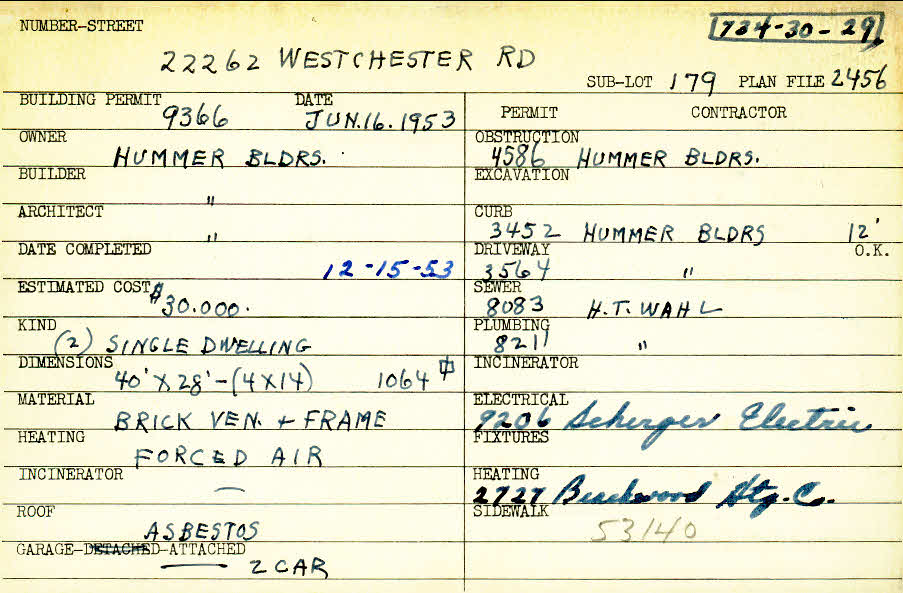 NUMBER-STREET
734-30-29
22262 WESTCHESTER RD
SUB-LOT 179 PLAN FILE 2456
BUILDING PERMIT DATE
9366 JUN.16.1953
OWNER
HUMMER BLDRS.
BUILDER
"
ARCHITECT
"
DATE COMPLETED
12-15-53
ESTIMATED COST
$30.000.
KIND
(2) SINGLE DWELLING
DIMENSIONS
40' X 28' - (4 X 14) 1064
MATERIAL
BRICK VEN. + FRAME
HEATING
FORCED AIR
INCINERATOR
—
ROOF
ASBESTOS
GARAGE-DETACHED-ATTACHED
2 CAR
PERMIT CONTRACTOR
OBSTRUCTION
4586 HUMMER BLDRS.
EXCAVATION
CURB
3452 HUMMER BLDRS 12'
DRIVEWAY O.K.
3564 "
SEWER
8083 H.T. WAHL
PLUMBING
8211 "
INCINERATOR
ELECTRICAL
9206 Scherger Electric
FIXTURES
HEATING
2727 Beachwood Htg. Co.
SIDEWALK
53140